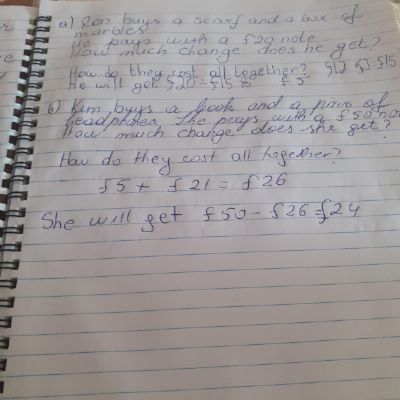 a) Ron buys a scarf and a box of
marbles
He pays with a £20 note.
How much change does he get?
How do they cost all together? £12 £3=£15
He will get £20-£15 £5
b) Kim buys a book and a pair of
headphones. She pays with a £50 no
How much change does she get?
How do they cost all together?
£5 + £21 = £26
She will get £50 - £26=£24